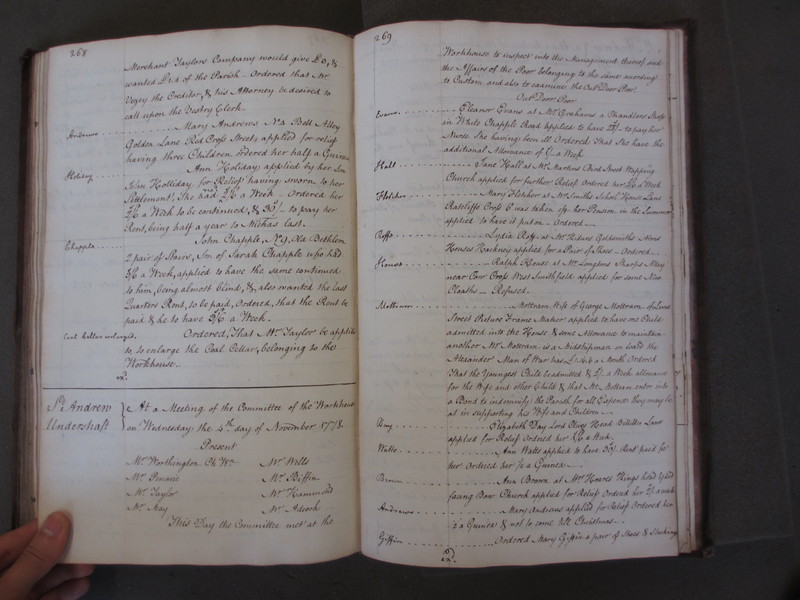 268
Merchant Taylors Company would give £5, &
wanted of the Parish - Ordered that Mr
Vezey the Creditor, & his Attorney be desired to
call upon the Vestry Clerk.
Andrews Mary Andrews No. Bell Alley
Golden Lane Red Cross Street, applied for relief
having three Children ordered her half a Guinea
Holiday Ann Holiday, applied by her Son
John Holliday, for Relief having sworn to her
Settlement, She had 2/6 a Week - Ordered her
2/6 a Week to be continued, & 30/- to pay her
Rent, being half a year to Michas last.
Chapple John Chapple, No. 9, Old Bethlem
2 pair of Stairs, Son of Sarah Chapple who had
a Week, applied to have the same continued
to him, being almost blind, &, also wanted the last
Quarters Rent, to be paid, Ordered, that the Rent be
paid & he to have 2/6 a Week.
Coal Cellar enlarged. Ordered, That Mr Taylor be applied
to, to enlarge the Coal Cellar, belonging to the
Workhouse.
St Andrew
Undershaft
At a Meeting of the Committee of the Workhouse
on Wednesday the 4th day of November 1778.
Present
Mr Worthington Ch Wn Mr Wells
Mr Mr Biffin
Mr Taylor Mr Hammond
Mr May Mr Adcock
This Day the Committee met at the
269
Workhouse to inspect into the Management thereof, and
the Affairs of the Poor belonging to the same according
to Custom, and also to examine the Out Door Poor.
Out Door Poor
Evans Eleanor Evans at Mr Grahams a Chandlers Shop
in White Chapple Road applied to have to pay her
Nurse She having been ill Ordered That She have the
additional Allowance of a Week
Hall Jane Hall at Mr Martins Bird Street Wapping
Church applied for further Relief Ordered her a Week
Fletcher Mary Fletcher at Mr Smiths School House Lane
Ratcliffe Cross & was taken off her Pension in the Summer
applied to have it put on - Ordered
Lydia at Mr Goldsmiths Alms
Houses Hackney applied for a Pair of Shoes - Ordered
Ralph at Mr Longdens Sharps Alley
near Cow Cross West Smithfield applied for some New
Cloaths - Refused.
Mottram Mottram Wife of George Mottram of Lime
Street Picture Frame Maker applied to have one Child
admitted into the House & some Allowance to maintain
another Mr Mottram is a Midshipman on board the
Alexander Man of War has a Month Ordered
That the Youngest Child be admitted & 2/- a Week allowance
for the Wife and other Child & that Mr Mottram enter into
a Bond to indemnify the Parish for all Expences they may be
at in supporting his Wife and Children
Elizabeth Day Lord Olives Head Billiter Lane
applied for Relief Ordered her a Week
Watts Ann Watts applied to have 30/- Rent paid for
her Ordered her ½ a Guinea
Brown Ann Brown at Mr Hoares Kings Head Yard
facing Bow Church applied for Relief Ordered her 2/- a week
Andrews Mary Andrews applied for Relief Ordered her
½ a Guinea & not to come till Christmas
Giffin Ordered Mary Giffin a pair of Shoes & Stockings